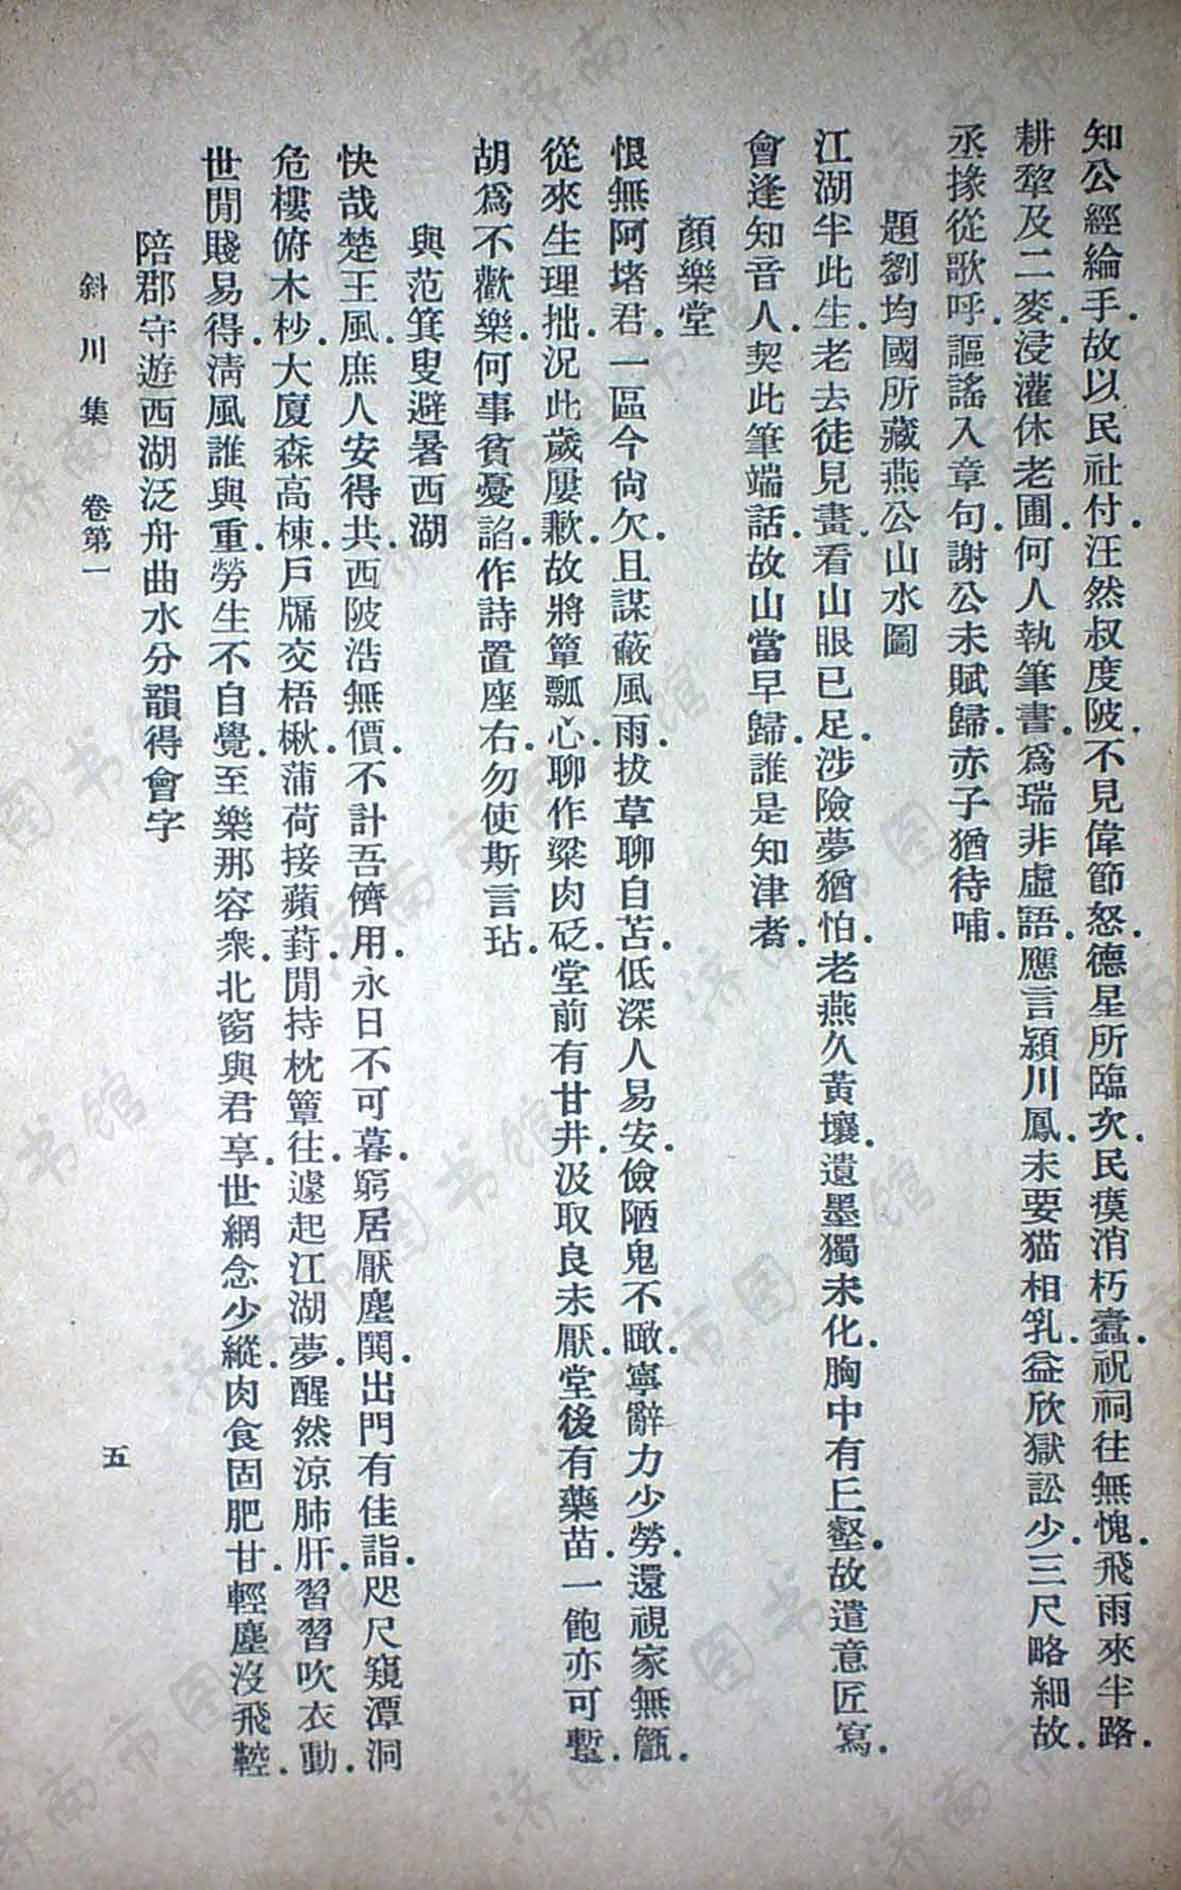 知公經綸手.故以民社付.汪然叔度陂.不見偉節怒.德星所臨次.民瘼消朽蠹.祝祠往無愧.飛雨來半路.
耕犂及二麥.浸灌休老圃.何人執筆書.爲瑞非虛語.應言潁川鳳.未要猫相乳.益欣獄訟少.三尺略細故.
丞掾從歌呼.謳謠入章句.謝公未賦歸.赤子猶待哺.
題劉均國所藏燕公山水圖
江湖半此生.老去徒見畫.看山眼已足.涉險夢猶怕.老燕久黃壤.遺墨獨未化.胸中有丘壑.故遣意匠寫.
會逢知音人.契此筆端話.故山當早歸.誰是知津者.
顏樂堂
恨無阿堵君.一區今尙欠.且謀蔽風雨.拔草聊自苫.低深人易安.儉陋鬼不瞰.寧辭力少勞.還視家無甔.
從來生理拙.況此歲屢歉.故將簞瓢心.聊作粱肉砭.堂前有甘井.汲取良未厭.堂後有藥苗.一飽亦可蹔.
胡爲不歡樂.何事貧憂諂.作詩置座右.勿使斯言玷.
與范箕叟避暑西湖
快哉楚王風.庶人安得共.西陂浩無價.不計吾儕用.永日不可暮.窮居厭塵閧.出門有佳詣.咫尺窺潭洞
危樓俯木杪.大厦森高棟.戶牖交梧楸.蒲荷接蘋葑.閒持枕簟往.遽起江湖夢.醒然涼肺肝.習習吹衣動.
世間賤易得.淸風誰與重.勞生不自覺.至樂那容衆.北窗與君享.世網念少縱.肉食固肥甘.輕塵沒飛鞚.
陪郡守遊西湖泛舟曲水分韻得會字
斜川集 卷第一
五